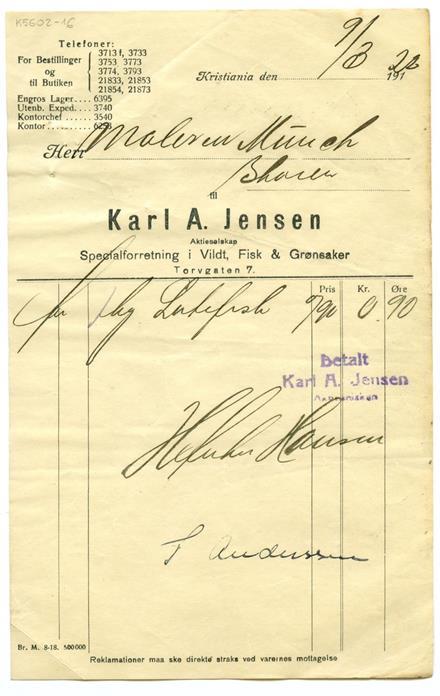 K5602-16
Telefoner:
For Bestillinger og til Butiken { 3713 f, 3733
3753, 3773
3774, 3793
21833, 21853
21854, 21873
Engros Lager.... 6395
Utenb. Exped.... 3740
Kontorchef..... 3540
Kontor.........
Kristiania den 9/3 1922
Herr Maleren Münch
til
Karl A. Jensen
Aktieselskap
Specialforretning i Vildt, Fisk & Grønsaker
Torvgaten 7.
Pris Kr. Øre
1 kg Lutefisk 0/90 0 90
Betalt
Karl A. Jensen
Hansen
Anderssen
Br. M. 8-18. 500000
Reklamationer maa ske direkte straks ved varernes mottagelse